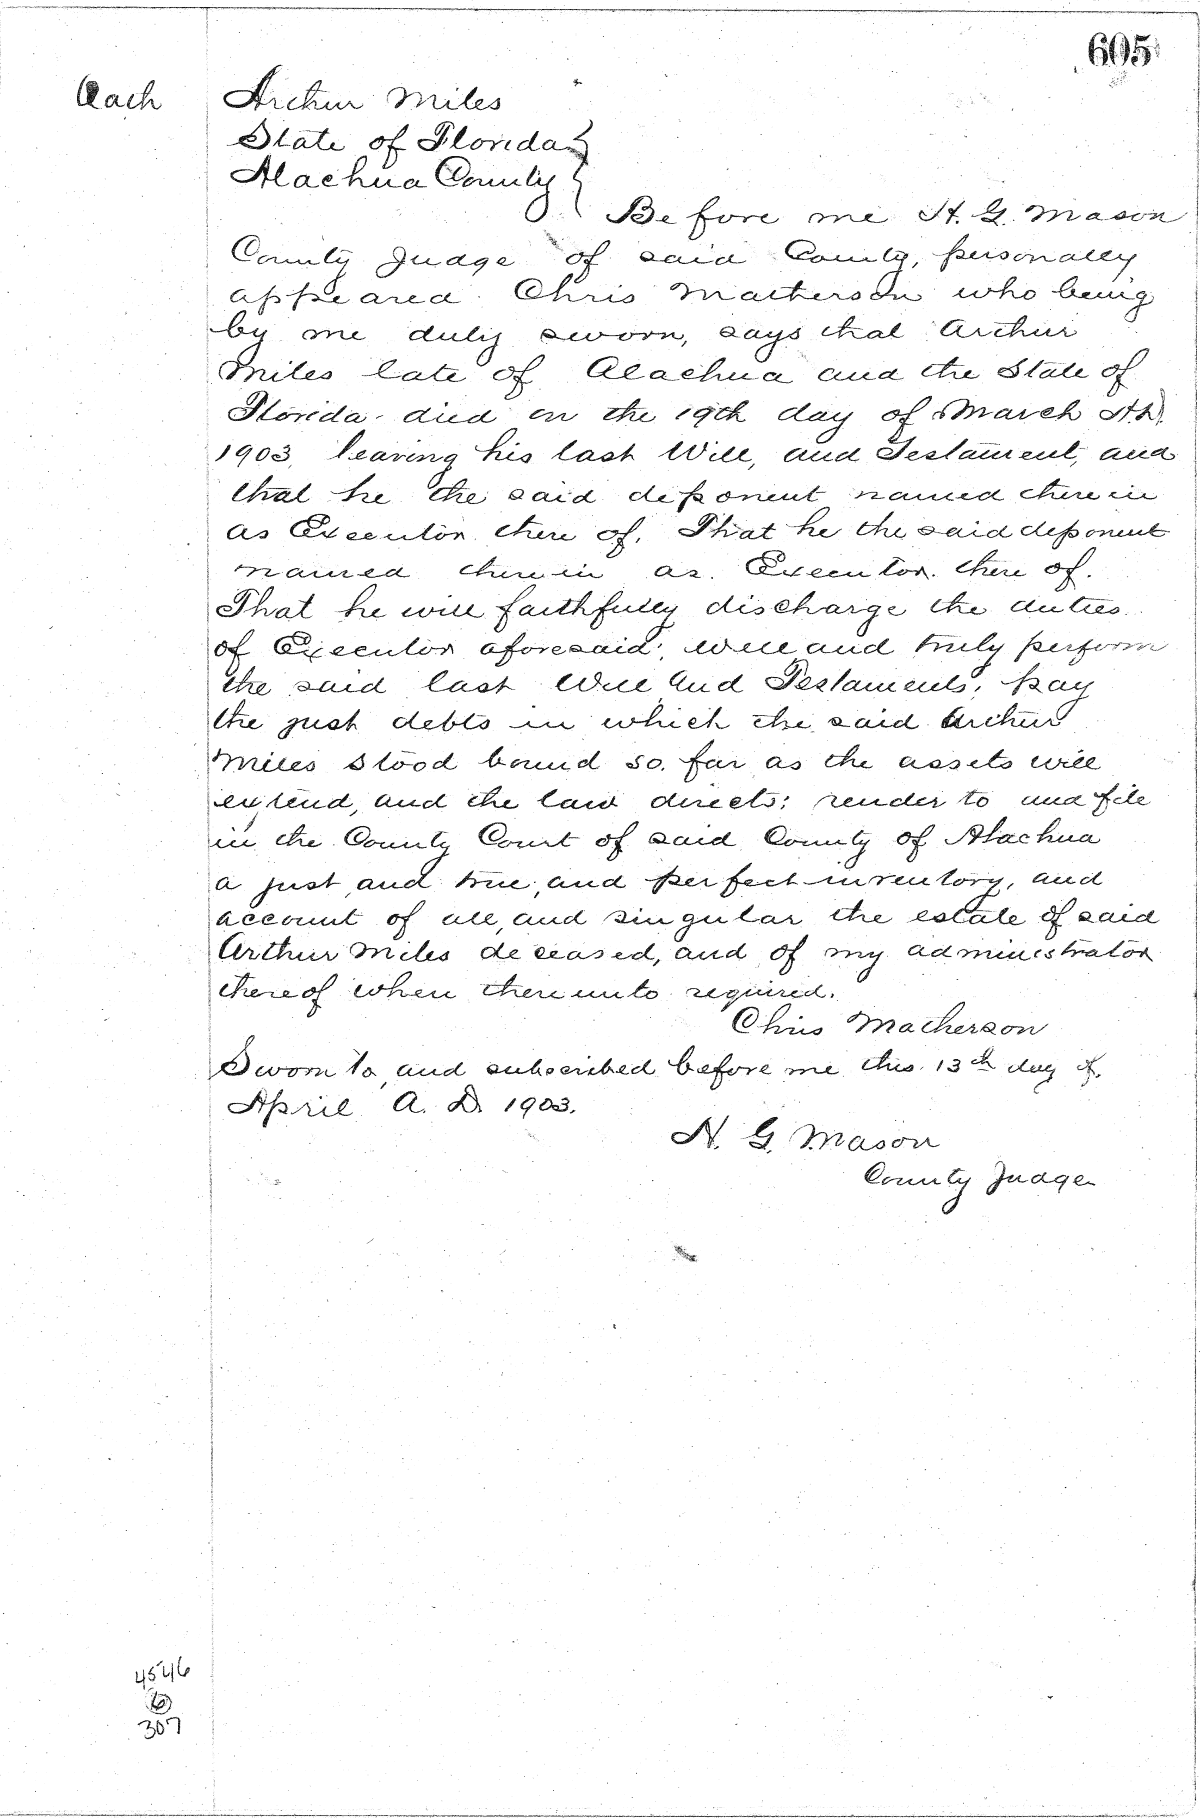 605
Oach
Arthur Miles
State of Florida }
Alachua County }
Before me H. G. Mason
County Judge of said County, personally
appeared Chris Matherson who being
by me duly sworn, says that Arthur
Miles late of Alachua and the State of
Florida died on the 19th day of March A.D.
1903, leaving his last Will, and Testament, and
that he the said deponent named therein
as Executor there of. That he the said deponent
named therein as Executor there of.
That he will faithfully discharge the duties
of Executor aforesaid, well and truly perform
the said last Will and Testaments, pay
the just debts in which the said Arthur
Miles stood bound so far as the assets will
extend, and the law directs; render to and file
in the County Court of said County of Alachua
a just, and true, and perfect inventory, and
account of all, and singular the estate of said
Arthur Miles deceased, and of my administrator
thereof when thereunto required.
Chris Matherson
Sworn to, and subscribed before me this 13th day of,
April A. D. 1903.
H. G. Mason
County Judge
4546
307